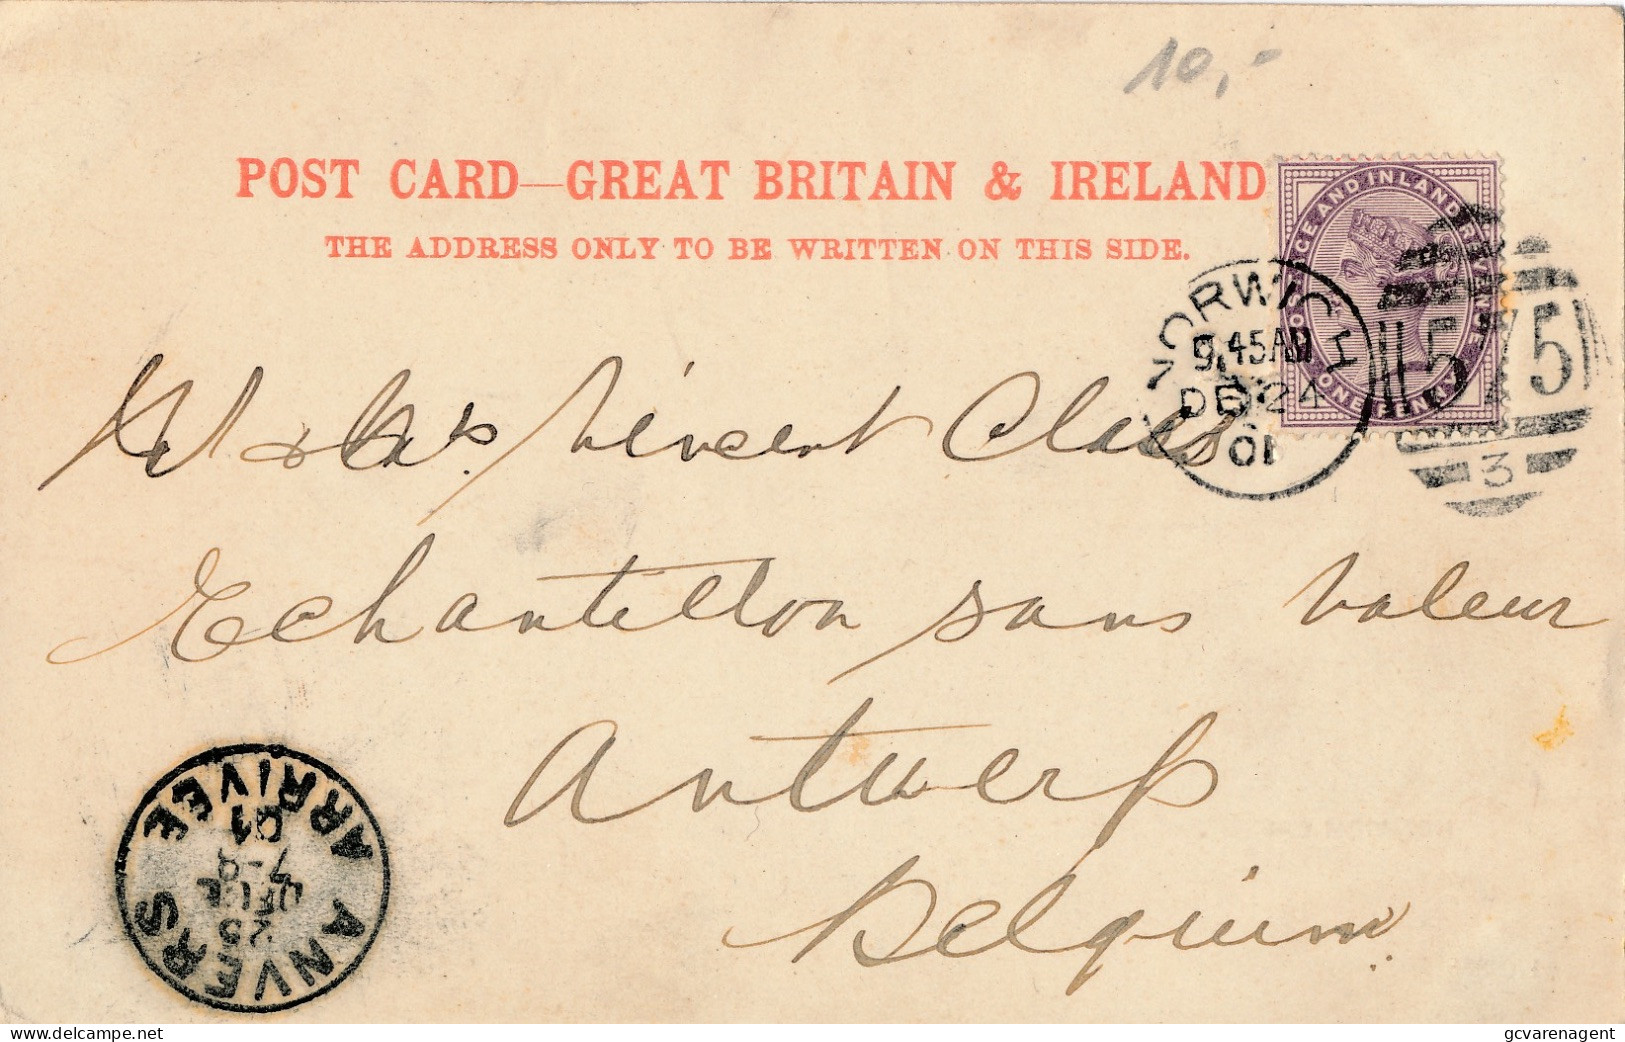 10,-
POST CARD—GREAT BRITAIN & IRELAND
THE ADDRESS ONLY TO BE WRITTEN ON THIS SIDE.
POSTAGE AND INLAND REVENUE
ONE PENNY
NORWICH
9.45AM
DE 24
01
575
3
Vincent Claes
Echantillon sans valeur
Antwerp
Belgium
ANVERS
25
7-8
01
ARRIVEE
www.delcampe.net
gcvarenagent